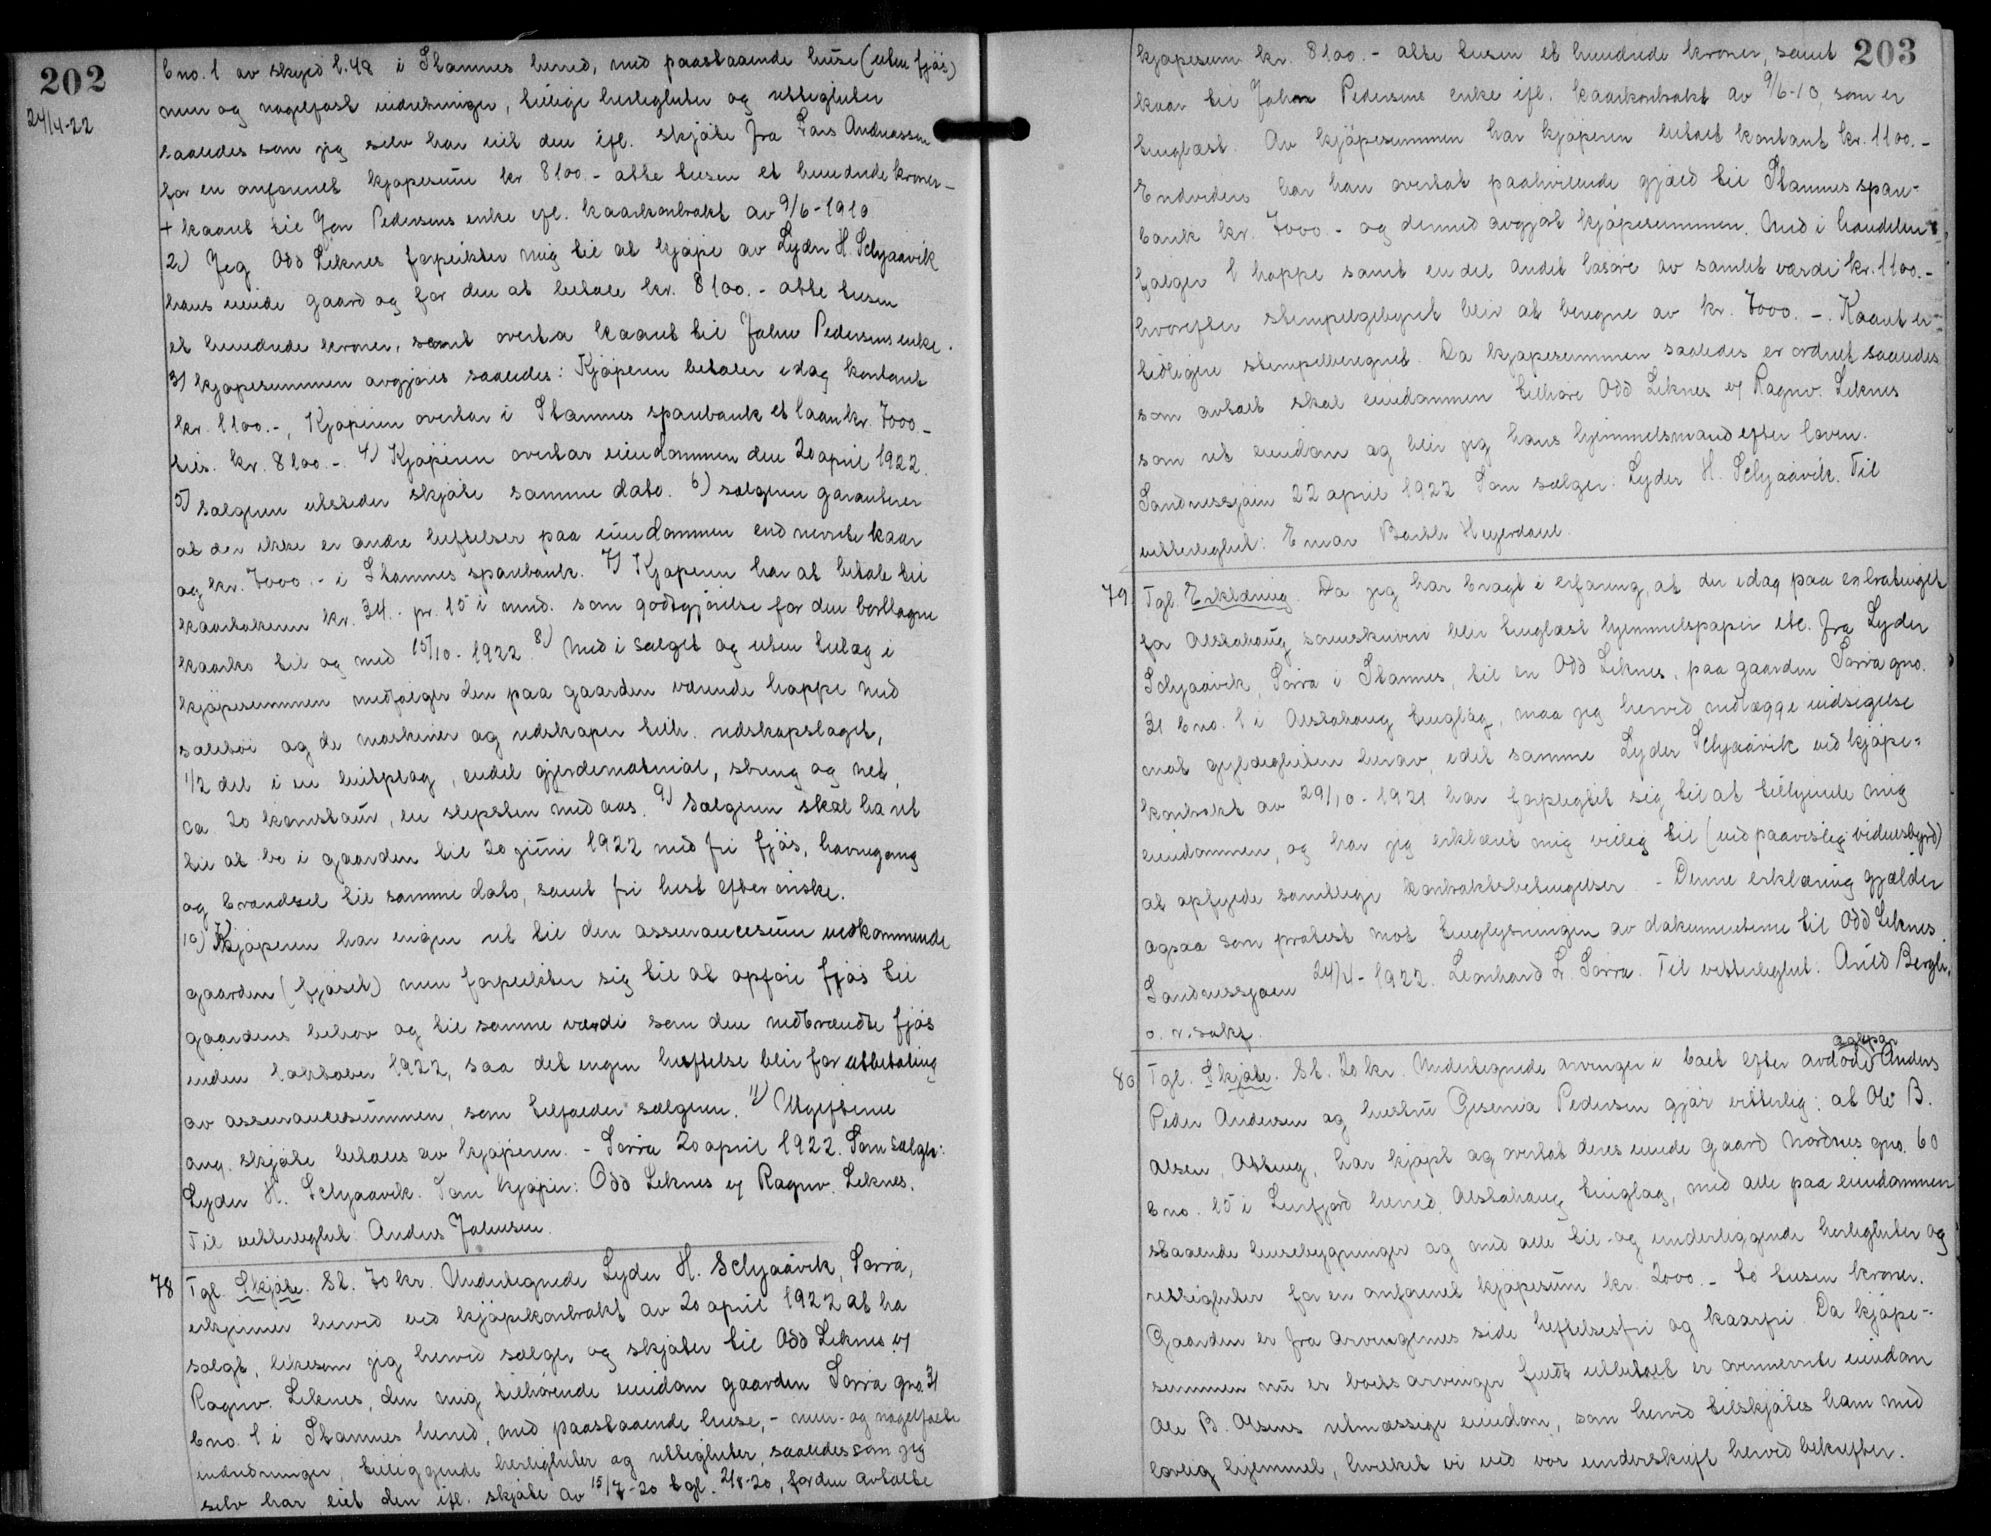 202
24/4-22
bno. 1 av skyld 1.48 i Stamnes herred, med paastaaende huse (uten fjøs)
mur og nagelfast indretninger, tillige herligheter og rettigheter
saaledes som jeg selv har eiet den ifl. skjøte fra Lars Andreassen
for en omforenet kjøpesum kr 8100.- otte tusen et hundrede kroner -
+ kaaret til Jon Pedersens enke ifl. kaarkontrakt av 9/6-1910
2) Jeg Odd Leknes forpligter mig til at kjøpe av Lyder H. Selsjaavik
hans eiende gaard og for den at betale kr. 8100.- otte tusen
et hundrede kroner, samt overta kaaret til John Pedersens enke.
3) Kjøpesummen avgjøres saaledes: Kjøperen betaler idag kontant
kr. 1100.-, Kjøperen overtar i Stamnes sparebank et laan kr. 7000.-
tils. kr. 8100.-. 4) Kjøperen overtar eiendommen den 20 april 1922.
5) Sælgeren utsteder skjøte samme dato. 6) Sælgeren garanterer
at der ikke er andre heftelser paa eiendommen end nævnte kaar
og kr. 7000.- i Stamnes sparebank. 7) Kjøperen har at betale til
kaartakeren kr. 34.- pr. 15 i mnd. som godtgjørelse for den borttagne
kaarko til og med 15/10-1922. 8) Med i salget og uten tillæg i
kjøpesummen medfølger den paa gaarden værende hoppe med
seletøi og de maskiner og redskaper tilh. redskapslaget,
1/2 del i en plog, endel gjerdematerial, streng og net,
ca 20 kornstaur, en slepsten med aas. 9) Sælgeren skal ha ret
til at bo i gaarden til 20 juni 1922 med fri fjøs, havnegang
og brændsel til samme dato, samt fri hest efter ønske.
10) Kjøperen har ingen ret til den assurancesum vedkommende
gaarden (fjøset) men forpligter sig til at opføre fjøs til
gaardens behov og til samme værdi som den nedbrændte fjøs
inden 1 oktober 1922, saa det ingen heftelse blir for utbetaling
av assurancesummen, som tilfalder sælgeren. 11) Utgifterne
ang. skjøte betales av kjøperen. - Sørra 20 april 1922. Som sælger:
Lyder H. Selsjaavik. Som kjøper: Odd Leknes ej Ragnv. Leknes.
Til vitterlighet: Anders Johnsen.
78 Tgl. Skjøte. St. 70 kr. Undertegnede Lyder H. Selsjaavik, Sørra,
erkjenner herved ved kjøpekontrakt av 20 april 1922 at ha
solgt, likesom jeg herved sælger og skjøter til Odd Leknes ej
Ragnv. Leknes, den mig tilhørende eiendom gaarden Sørra gno. 31
bno. 1 i Stamnes herred, med paastaaende huse, - mur- og nagelfaste
indredninger, tilliggende herligheter og rettigheter, saaledes som jeg
selv har eiet den ifl. skjøte av 15/7-20 tgl. 2/8-20, for den avtalte
203
kjøpesum kr. 8100.- otte tusen et hundrede kroner, samt
kaar til John Pedersens enke ifl. kaarkontrakt av 9/6-10, som er
tinglæst. Av kjøpesummen har kjøperen betalt kontant kr. 1100.-
Endvidere har han overtat paahvilende gjæld til Stamnes spare-
bank kr. 7000.- og dermed avgjort kjøpesummen. Med i handelen
følger 1 hoppe samt en del andet løsøre av samlet værdi kr. 1100.-
hvorefter stempelgebyret blir at beregne av kr. 7000.-. Kaaret er
tidligere stempelberegnet. Da kjøpesummen saaledes er ordnet saaledes
som avtalt skal eiendommen tilhøre Odd Leknes ej Ragnv. Leknes
som ret eiendom og blir jeg hans hjemmelsmand efter loven.
Sandnessjøen 22 april 1922 Som sælger: Lyder H. Selsjaavik. Til
vitterlighet: Einar Barth Hegerdahl.
79. Tgl. Erklæring. Da jeg har bragt i erfaring, at der idag paa extratinget
for Alstahaug sorenskriveri blir tinglæst hjemmelspapir etc. fra Lyder
Selsjaavik, Sørra i Stamnes, til en Odd Leknes, paa gaarden Sørra gno.
31 bno. 1 i Alstahaug tinglag, maa jeg herved nedlægge indsigelse
mot gyldigheten herav, idet samme Lyder Selsjaavik ved kjøpe-
kontrakt av 29/10-1921 har forpligtet sig til at tilskjøte mig
eiendommen, og har jeg erklæret mig villig til (ved paaviselig vidnesbyrd)
at opfylde samtlige kontraktsbetingelser. - Denne erklæring gjælder
ogsaa som protest mot tinglysningen av dokumenterne til Odd Leknes.
Sandnessjøen 24/4-1922. Leonhard L. Sørra. Til vitterlighet: Arild Bergh,
o.r.sakf.
80 Tgl. Skjøte. St. 20 kr. Undertegnede arvinger i boet efter avdøde ægtepar Anders
Peder Andersen og hustru Gesenia Pedersen gjør vitterlig: at Ole B.
Olsen, Otting, har kjøpt og overtat deres eiende gaard Nordnes gno. 60
bno. 15 i Leirfjord herred, Alstahaug tinglag, med alle paa eiendommen
staaende husebygninger og med alle til- og underliggende herligheter og
rettigheter for en omforenet kjøpesum kr. 2000.- to tusen kroner.
Gaarden er fra arvingernes side heftelsesfri og kaarfri. Da kjøpe-
summen nu er boets arvinger fuldt utbetalt er ovennævnte eiendom
Ole B. Olsens retmæssige eiendom, som herved tilskjøtes ham med
lovlig hjemmel, hvilket vi ved vor underskrift herved bekræfter.